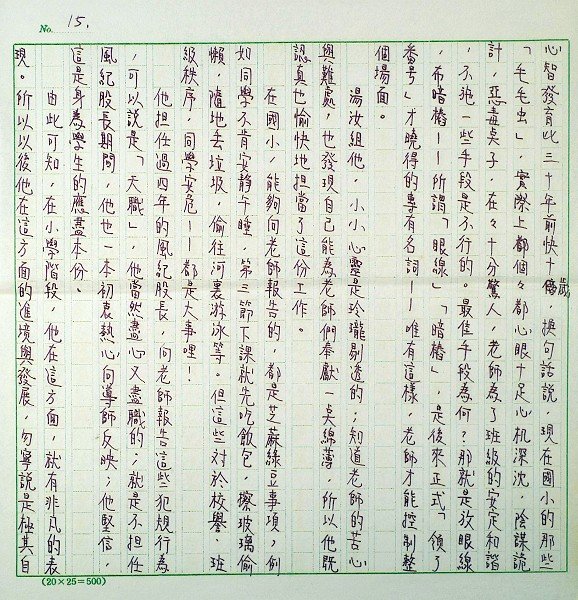 No. 15.
心智發育比三十年前快十幾歲，換句話說，現在國小的那些
「毛毛虫」，實際上都個々都心眼十足心机深沈，陰謀詭
計，惡毒臭子，在々十分驚人，老師為了班級的安定和諧
，不施一些手段是不行的。最佳手段為何？那就是放眼線
，布暗樁——所謂「眼線」「暗樁」，是後來正式「領了
番号」才曉得的專有名詞——唯有這樣，老師才能控制整
個場面。
湯汝組他，小小心靈是玲瓏剔透的；知道老師的苦心
與難處，也發現自己能為老師們奉獻一臭綿薄，所以他既
認真也愉快地担當了這份工作。
在國小，能夠向老師報告的，都是芝蔴綠豆事項；例
如同學不肯安靜午睡，第三節下課就先吃飯包，擦玻璃偷
懶，隨地丢垃圾，偷往河裏游泳等。但這些對於校譽、班
級秩序，同學安危——都是大事哩！
他担任過四年的風紀股長，向老師報告這些犯規行為
，可以說是「天職」，他當然盡心又盡職的；就是不担任
風紀股長期間，他也一本初衷熱心向導師反映；他堅信，
這是身為學生的應盡本份。
由此可知，在小學階段，他在這方面，就有非凡的表
現。所以以後他在這方面的進境與發展，勿寧說是極其自
(20×25=500)